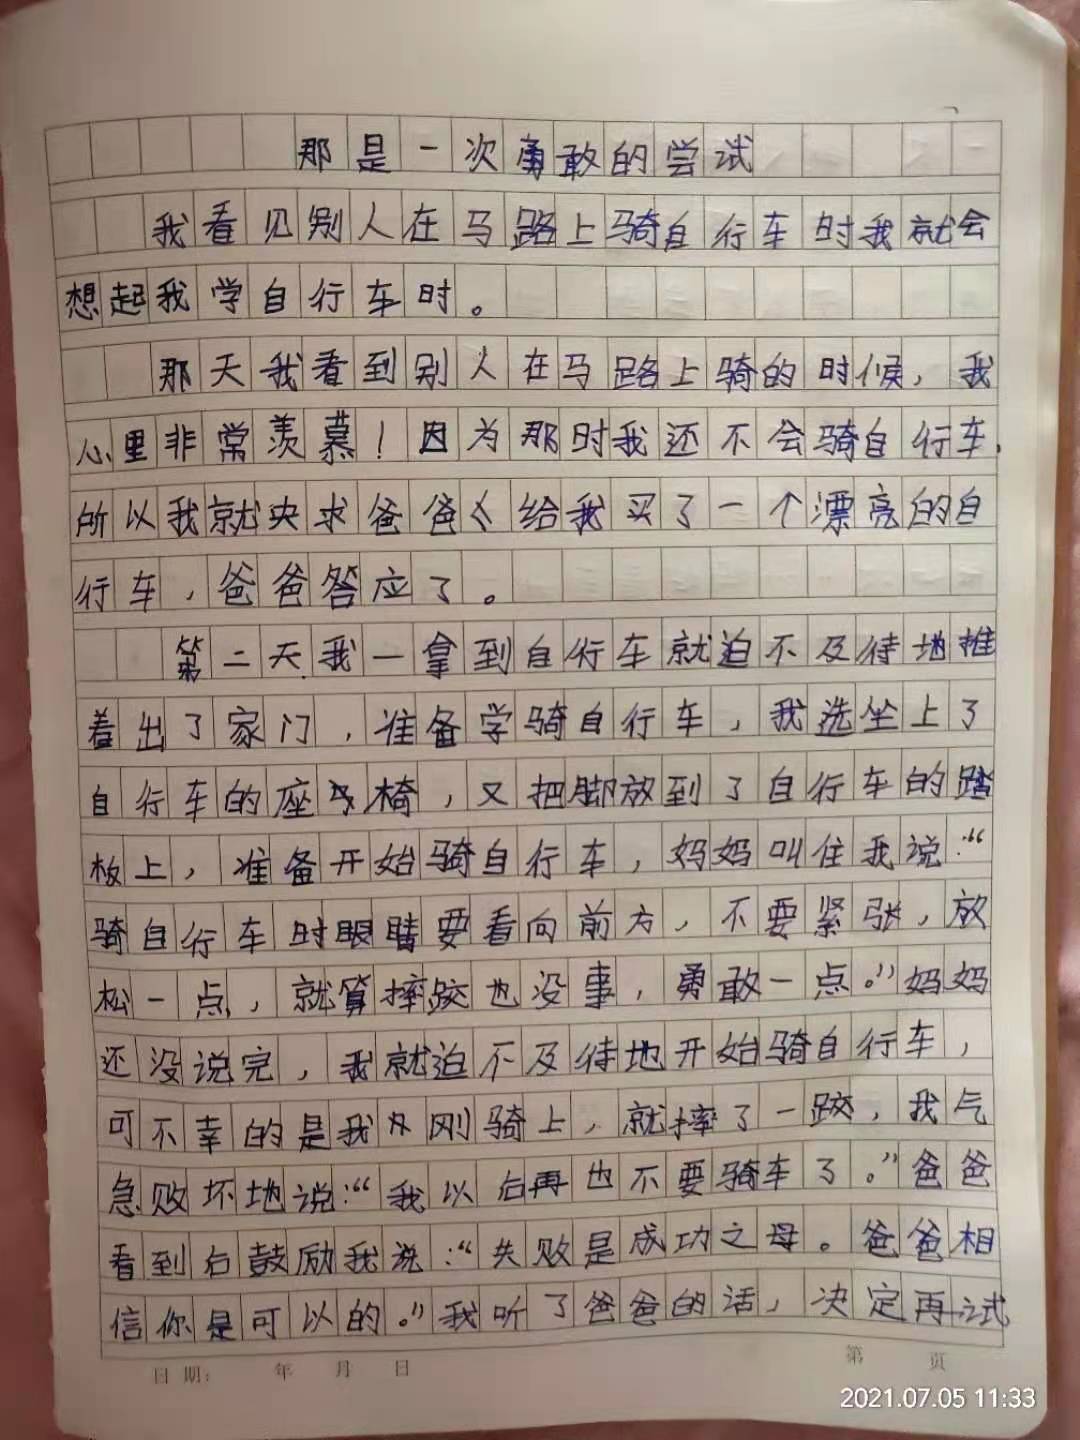 那是一次勇敢的尝试
我看见别人在马路上骑自行车时我就会
想起我学自行车时。
那天我看到别人在马路上骑的时候，我
心里非常羡慕！因为那时我还不会骑自行车，
所以我就央求爸爸给我买了一个漂亮的自
行车，爸爸答应了。
第二天我一拿到自行车就迫不及待地推
着出了家门，准备学骑自行车，我选坐上了
自行车的座椅，又把脚放到了自行车的踏
板上，准备开始骑自行车，妈妈叫住我说：“
骑自行车时眼睛要看向前方，不要紧张，放
松一点，就算摔跤也没事，勇敢一点。”妈妈
还没说完，我就迫不及待地开始骑自行车，
可不幸的是我刚骑上，就摔了一跤，我气
急败坏地说：“我以后再也不要骑车了。”爸爸
看到后鼓励我说：“失败是成功之母。爸爸相
信你是可以的。”我听了爸爸的话，决定再试
日期： 年 月 日 第 页
2021.07.05 11:33